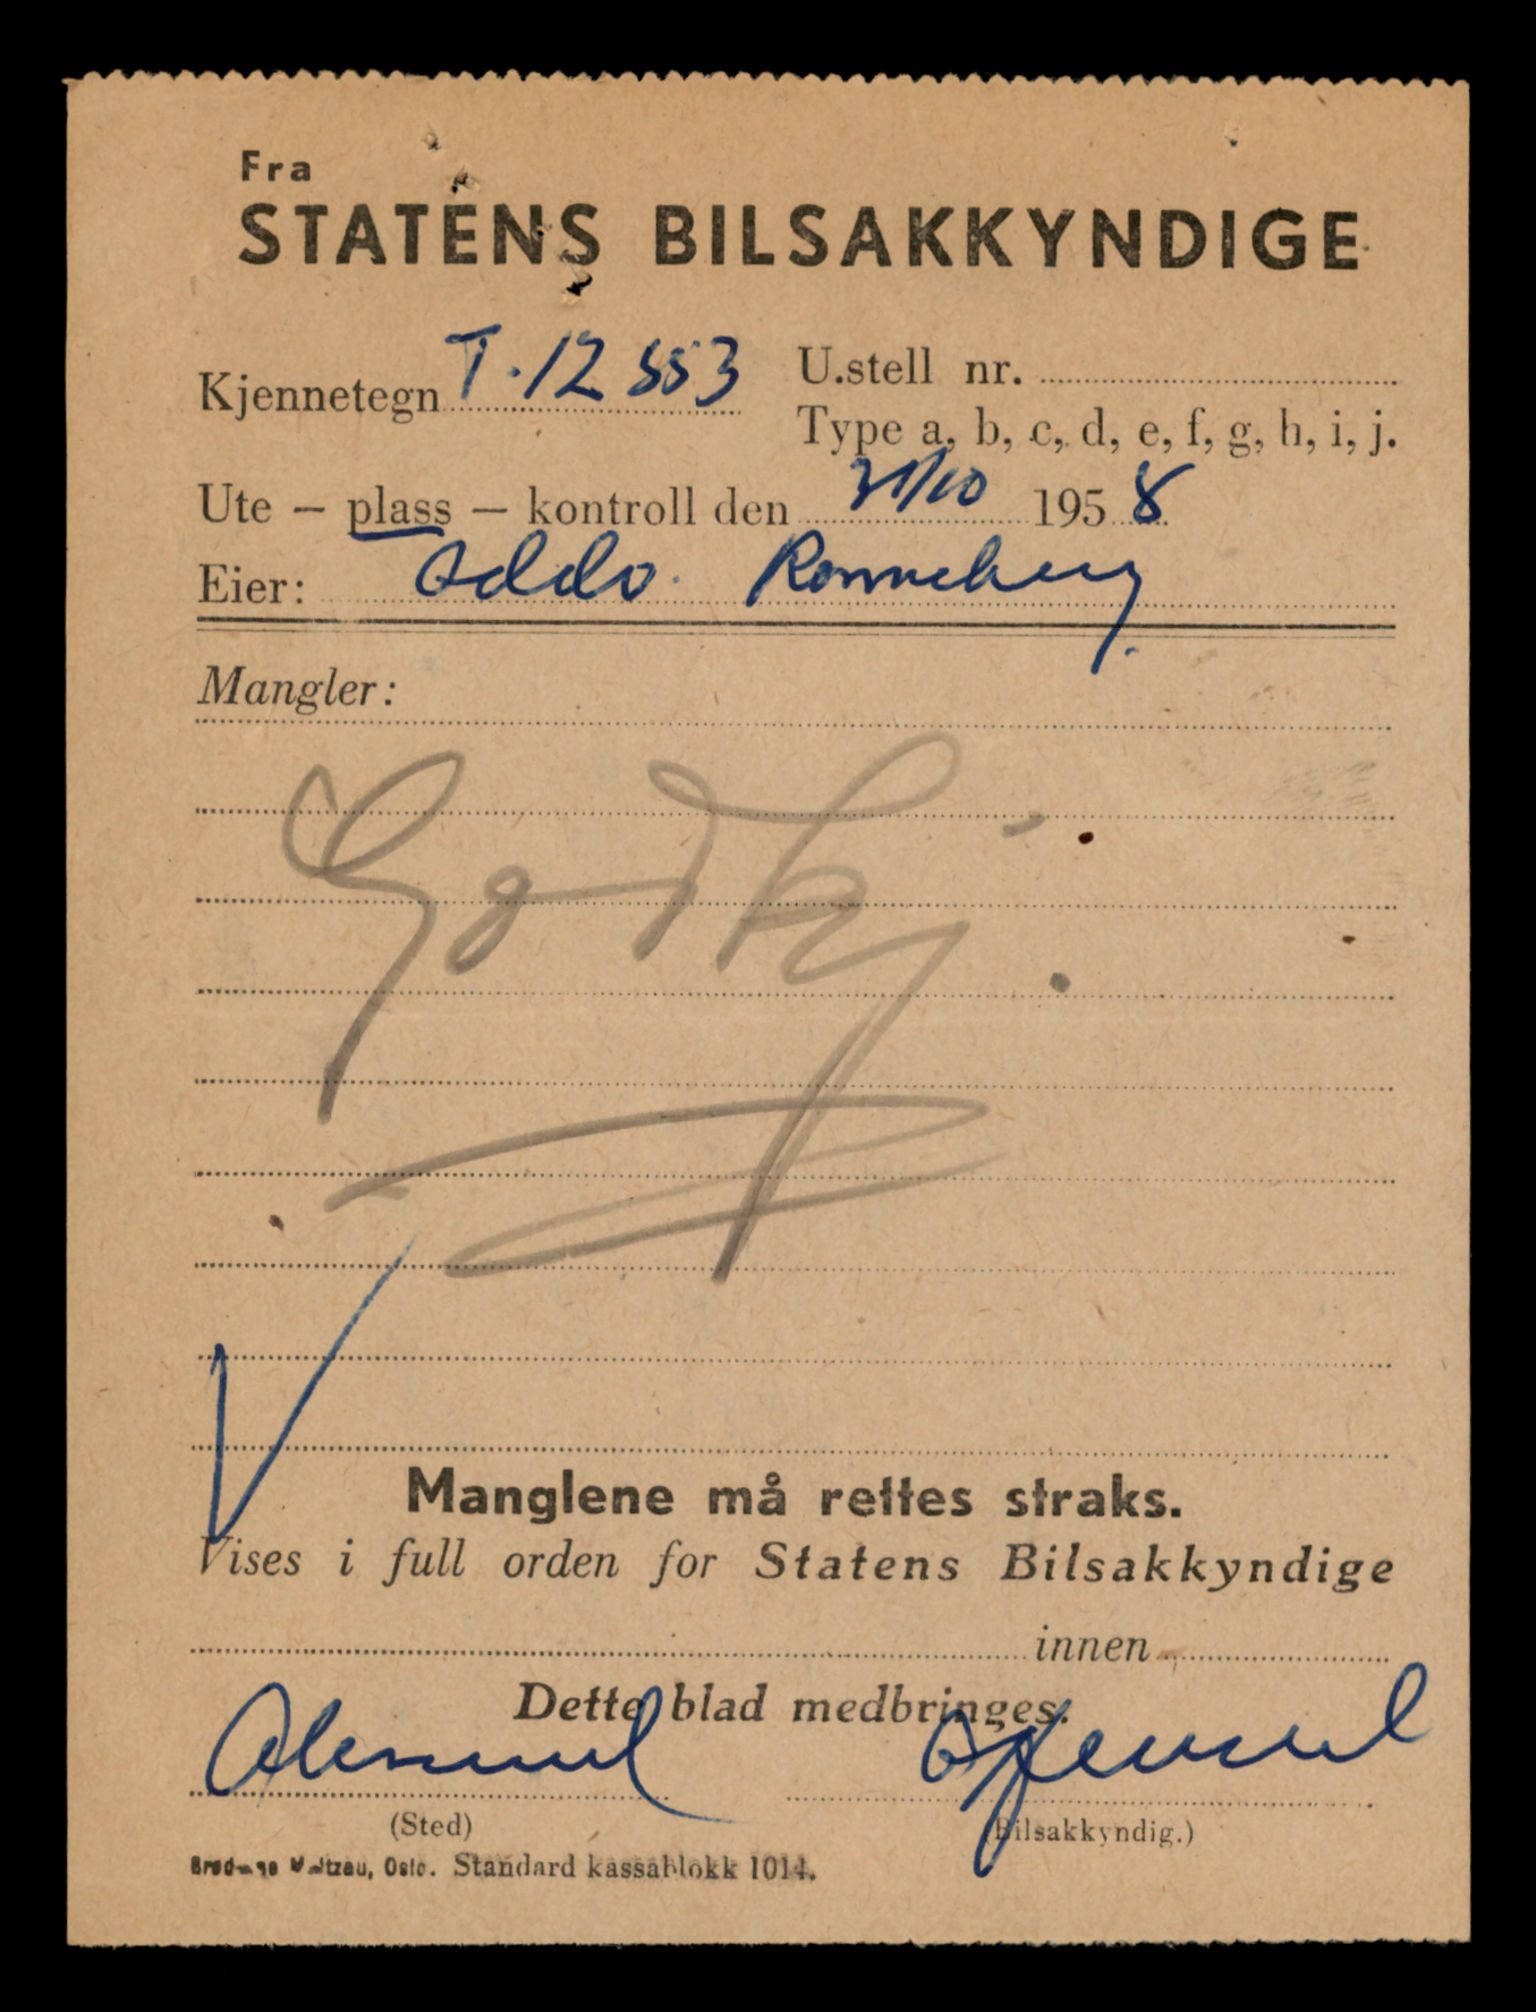 Fra
STATENS BILSAKKYNDIGE
Kjennetegn T.12553 U.stell nr.
Type a, b, c, d, e, f, g, h, i, j.
Ute – plass – kontroll den 31/10 1958
Eier: Oddv. Ronneberg.
Mangler:
Godkj.
Manglene må rettes straks.
Vises i full orden for Statens Bilsakkyndige
innen
Dette blad medbringes.
Ålesund
(Sted) (Bilsakkyndig.)
Standard kassablokk 1014.